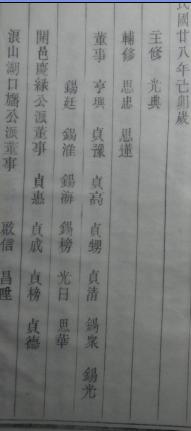 民國廿八年己卯歲
主修 光典
輔修 思忠 思運
董事 亨興 貞藻 貞高 貞甥 貞清 錫衆 錫光
錫廷 錫淮 錫海 錫榜 光日 思華
開邑慶緣公派董事 貞惠 貞成 貞榜 貞德
浪山湖口 公派董事 啟信 昌